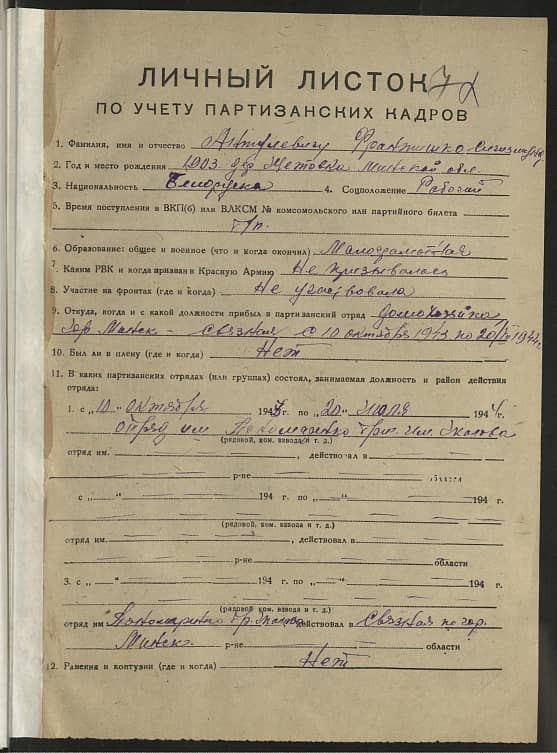 ЛИЧНЫЙ ЛИСТОК
ПО УЧЕТУ ПАРТИЗАНСКИХ КАДРОВ
1. Фамилия, имя и отчество
2. Год и место рождения 1903. дер. Минской обл.
3. Национальность Белоруска 4. Соцположение Рабочий
5. Время поступления в ВКП(б) или ВЛКСМ № комсомольского или партийного билета
б/п.
6. Образование: общее и военное (что и когда окончил) Малограмотная
7. Каким РВК и когда призван в Красную Армию Не призывалась
8. Участие на фронтах (где и когда) Не участвовала
9. Откуда, когда и с какой должности прибыл в партизанский отряд домохозяйка
гор. Минск – Связная с 10 октября 1943 по 1944 г.
10. Был ли в плену (где и когда) Нет
11. В каких партизанских отрядах (или группах) состоял, занимаемая должность и район действия
отряда:
1. с „10" октября 1943 г. по „20" 1944 г.
отряд им Пономаренко бриг. им.
(рядовой, ком. взвода и т. д.)
отряд им. , действовал в
р-не области
с „—" 194 г. по „—" 194 г.
(рядовой, ком. взвода и т. д.)
отряд им. , действовал в
р-не области
3. с „—" 194 г. по „—" 194 г.
(рядовой, ком. взвода и т. д.)
отряд им Пономаренко бр. действовал в Связная по гор.
Минск р-не области
12. Ранения и контузии (где и когда) Нет